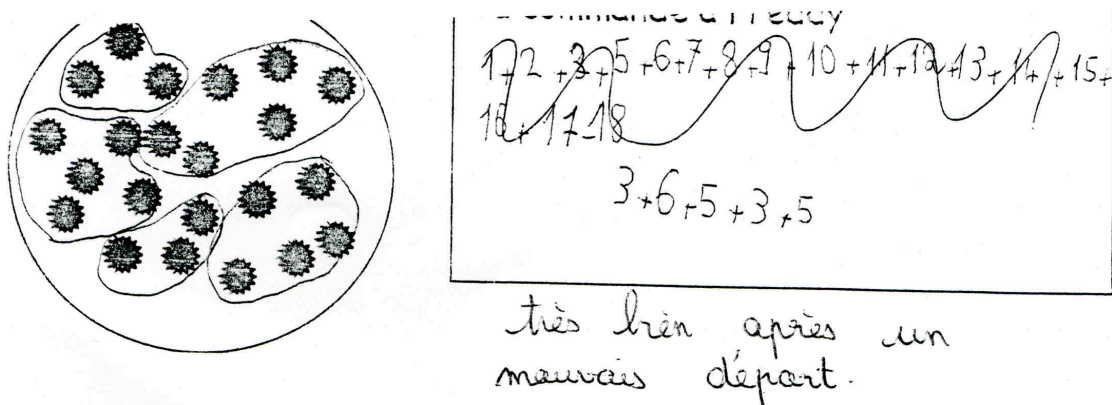 commande à Freddy
1+2+3+5+6+7+8+9+10+11+12+13+14+15+
16+17-18
3+6+5+3+5
très bien après un
mauvais départ.